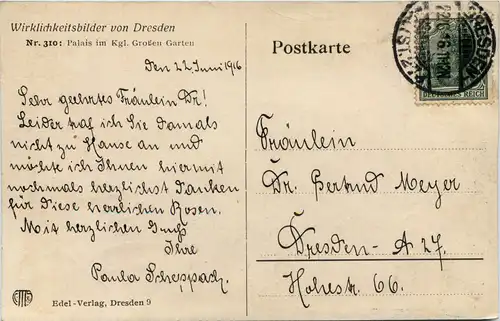 Wirklichkeitsbilder von Dresden
Nr. 310: Palais im Kgl. Großen Garten
Postkarte
DRESDEN
DEUTSCHES REICH
Den 22 Juni 1916
Sehr geehrtes Fräulein Dr!
Leider traf ich Sie damals
nicht zu Hause an und
möchte ich Ihnen hiermit
nochmals herzlichst danken
für diese herrlichen Rosen.
Mit herzlichen Gruß
Ihre
Paula
Fräulein
Dr. Gertrud Meyer
Dresden-A 27.
Hohestr. 66.
Edel-Verlag, Dresden 9